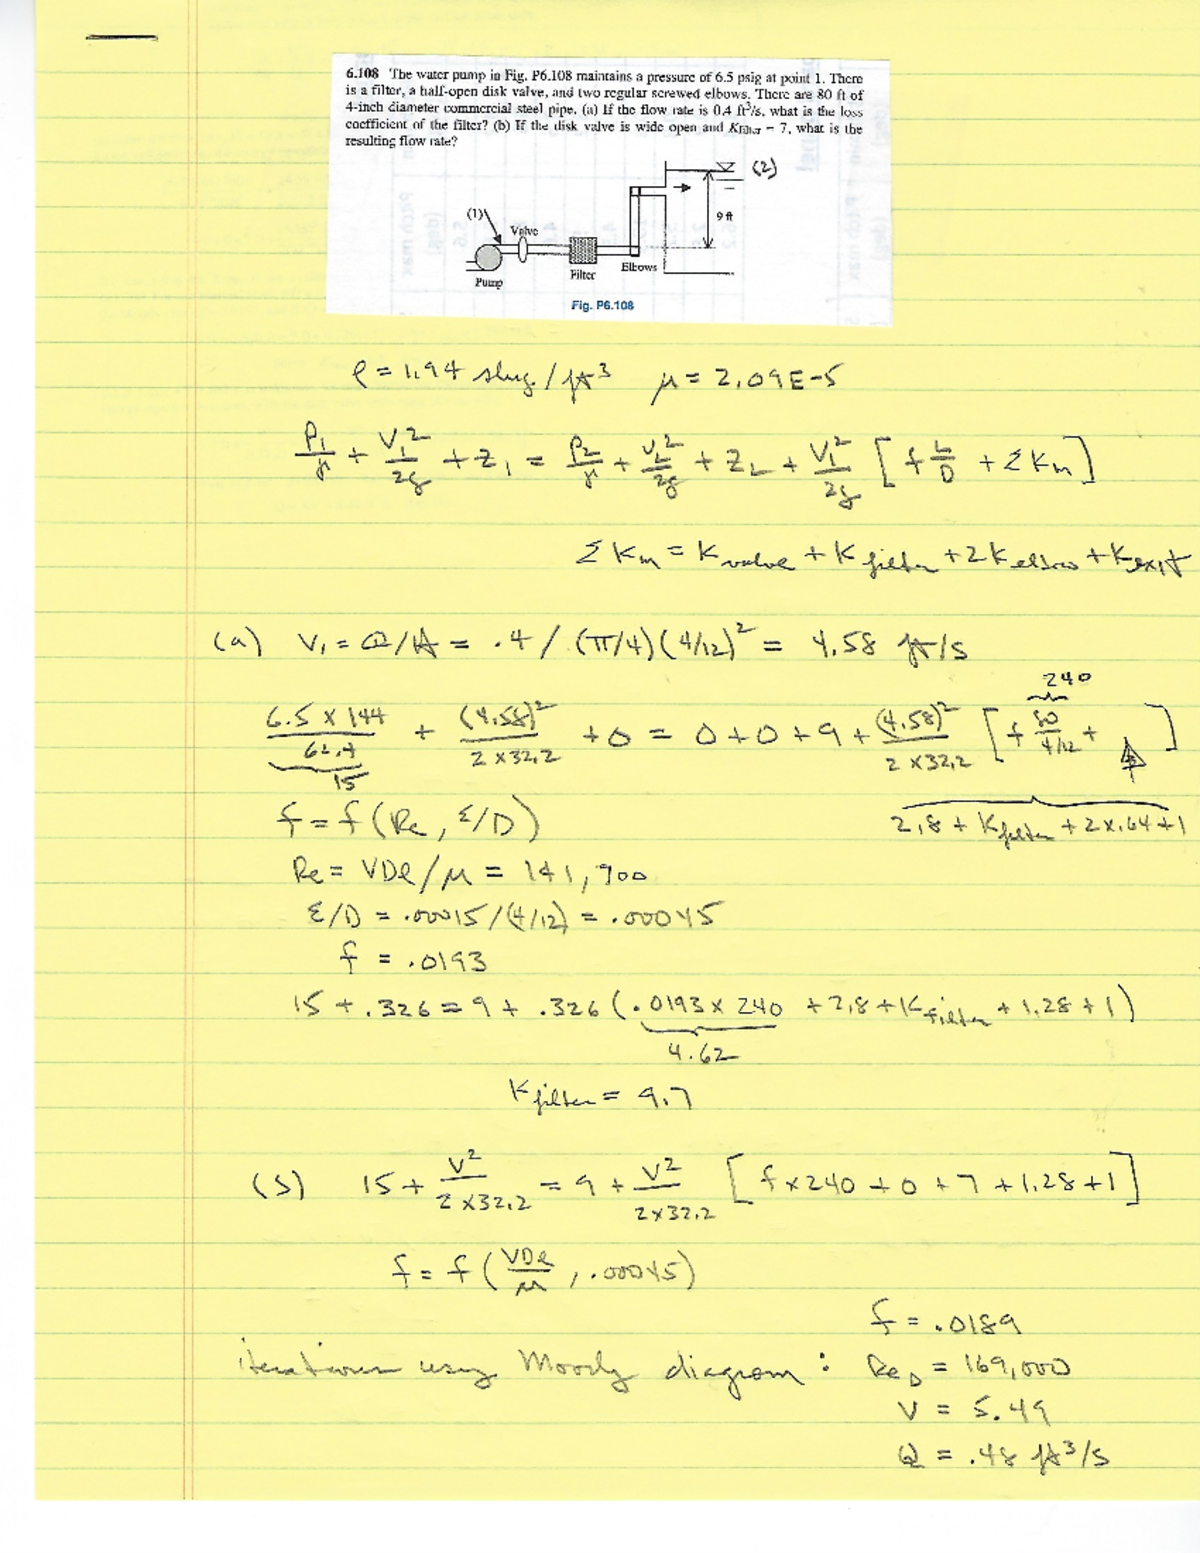 6.108 The water pump in Fig. P6.108 maintains a pressure of 6.5 psig at point 1. There
is a filter, a half-open disk valve, and two regular screwed elbows. There are 80 ft of
4-inch diameter commercial steel pipe. (a) If the flow rate is 0.4 ft³/s, what is the loss
coefficient of the filter? (b) If the disk valve is wide open and K_filter = 7, what is the
resulting flow rate?
(2)
(1)
9 ft
Valve
Filter
Elbows
Pump
Fig. P6.108
ρ = 1.94 slug/ft³ μ = 2.09E-5
P₁/γ + V₁²/2g + z₁ = P₂/γ + V₂²/2g + z₂ + V₁²/2g [f L/D + ΣKm]
ΣKm = K valve + K filter + 2K elbow + K exit
(a) V₁ = Q/A = .4/(π/4)(4/12)² = 4.58 ft/s
240
6.5 x 144/62.4 + (4.58)²/2 x 32.2 + 0 = 0 + 0 + 9 + (4.58)²/2 x 32.2 [f 80/4/12 + ]
15
f = f(Re, ε/D)
2.8 + K filter + 2 x .64 + 1
Re = VDρ/μ = 141,700
ε/D = .00015/(4/12) = .00045
f = .0193
15 + .326 = 9 + .326 (.0193 x 240 + 2.8 + K filter + 1.28 + 1)
4.62
K filter = 9.7
(b) 15 + V²/2 x 32.2 = 9 + V²/2 x 32.2 [f x 240 + 0 + 7 + 1.28 + 1]
f = f(VDρ/μ, .00045)
f = .0189
iterations using Moody diagram: Re_D = 169,000
V = 5.49
Q = .48 ft³/s